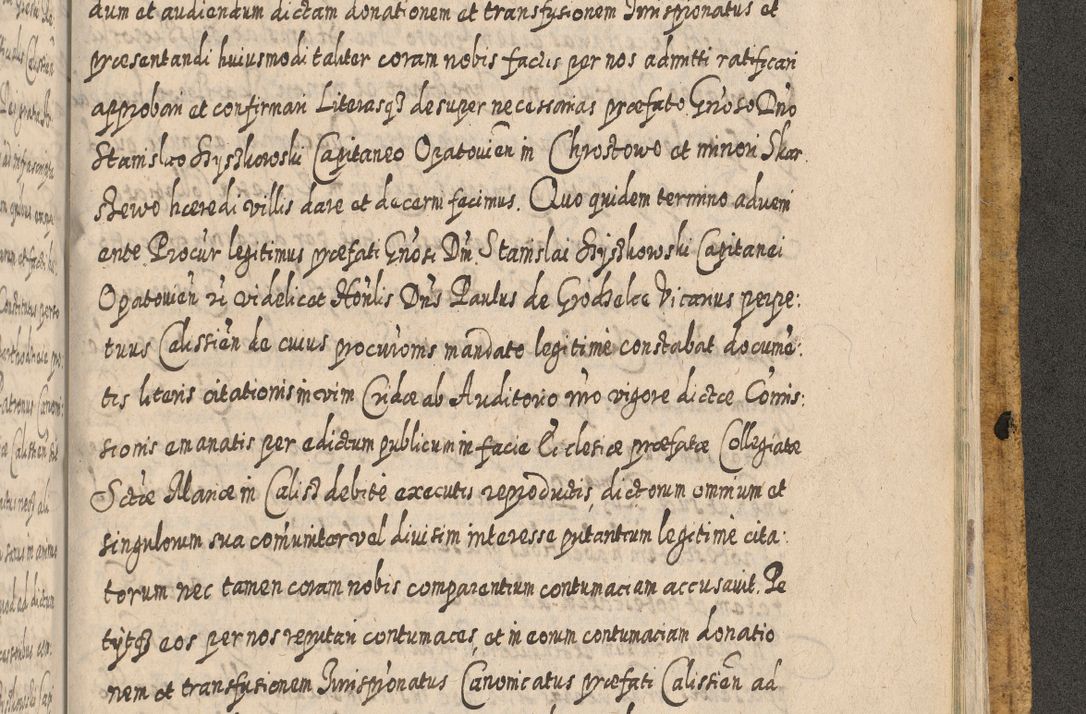 dum et audiendum dictam donationem et transfusionem Jurispronatus et
præsentandi huiusmodi taliter coram nobis factis per nos admitti ratificari
approbari et confirmari Literasq3 desuper necessarias præfato Gnoso Dno
Stanislao Capitaneo Opatovien in Chrostowo et minori Skar
szewo hæredi villis dare et decerni facimus. Quo quidem termino adveni
ente Procur legitimus præfati Gnosi Dni Stanislai Capitanei
Opatovien videlicet Honlis Dns Paulus de Grodzelce Vicarius perpe:
tuus Calissien de cuius procuroris mandato legitime constabat docume:
tis literis citationis in vim Cridæ ab Auditorio nro vigore dictæ Comis:
sionis emanatis per edictum publicum in facie Ecclesiæ præfatæ Collegiatæ
Sctæ Mariæ in Calisz debite executis reproductis, dictorum omnium et
singulorum sua comuniter vel divisim interesse putantium legitime cita:
torum nec tamen coram nobis comparentium contumaciam accusavit. Pe
tytq3 eos per nos reputari contumaces, et in eorum contumaciam donatio
nem et transfusionem Jurispronatus Canonicatus præfati Calissien ad